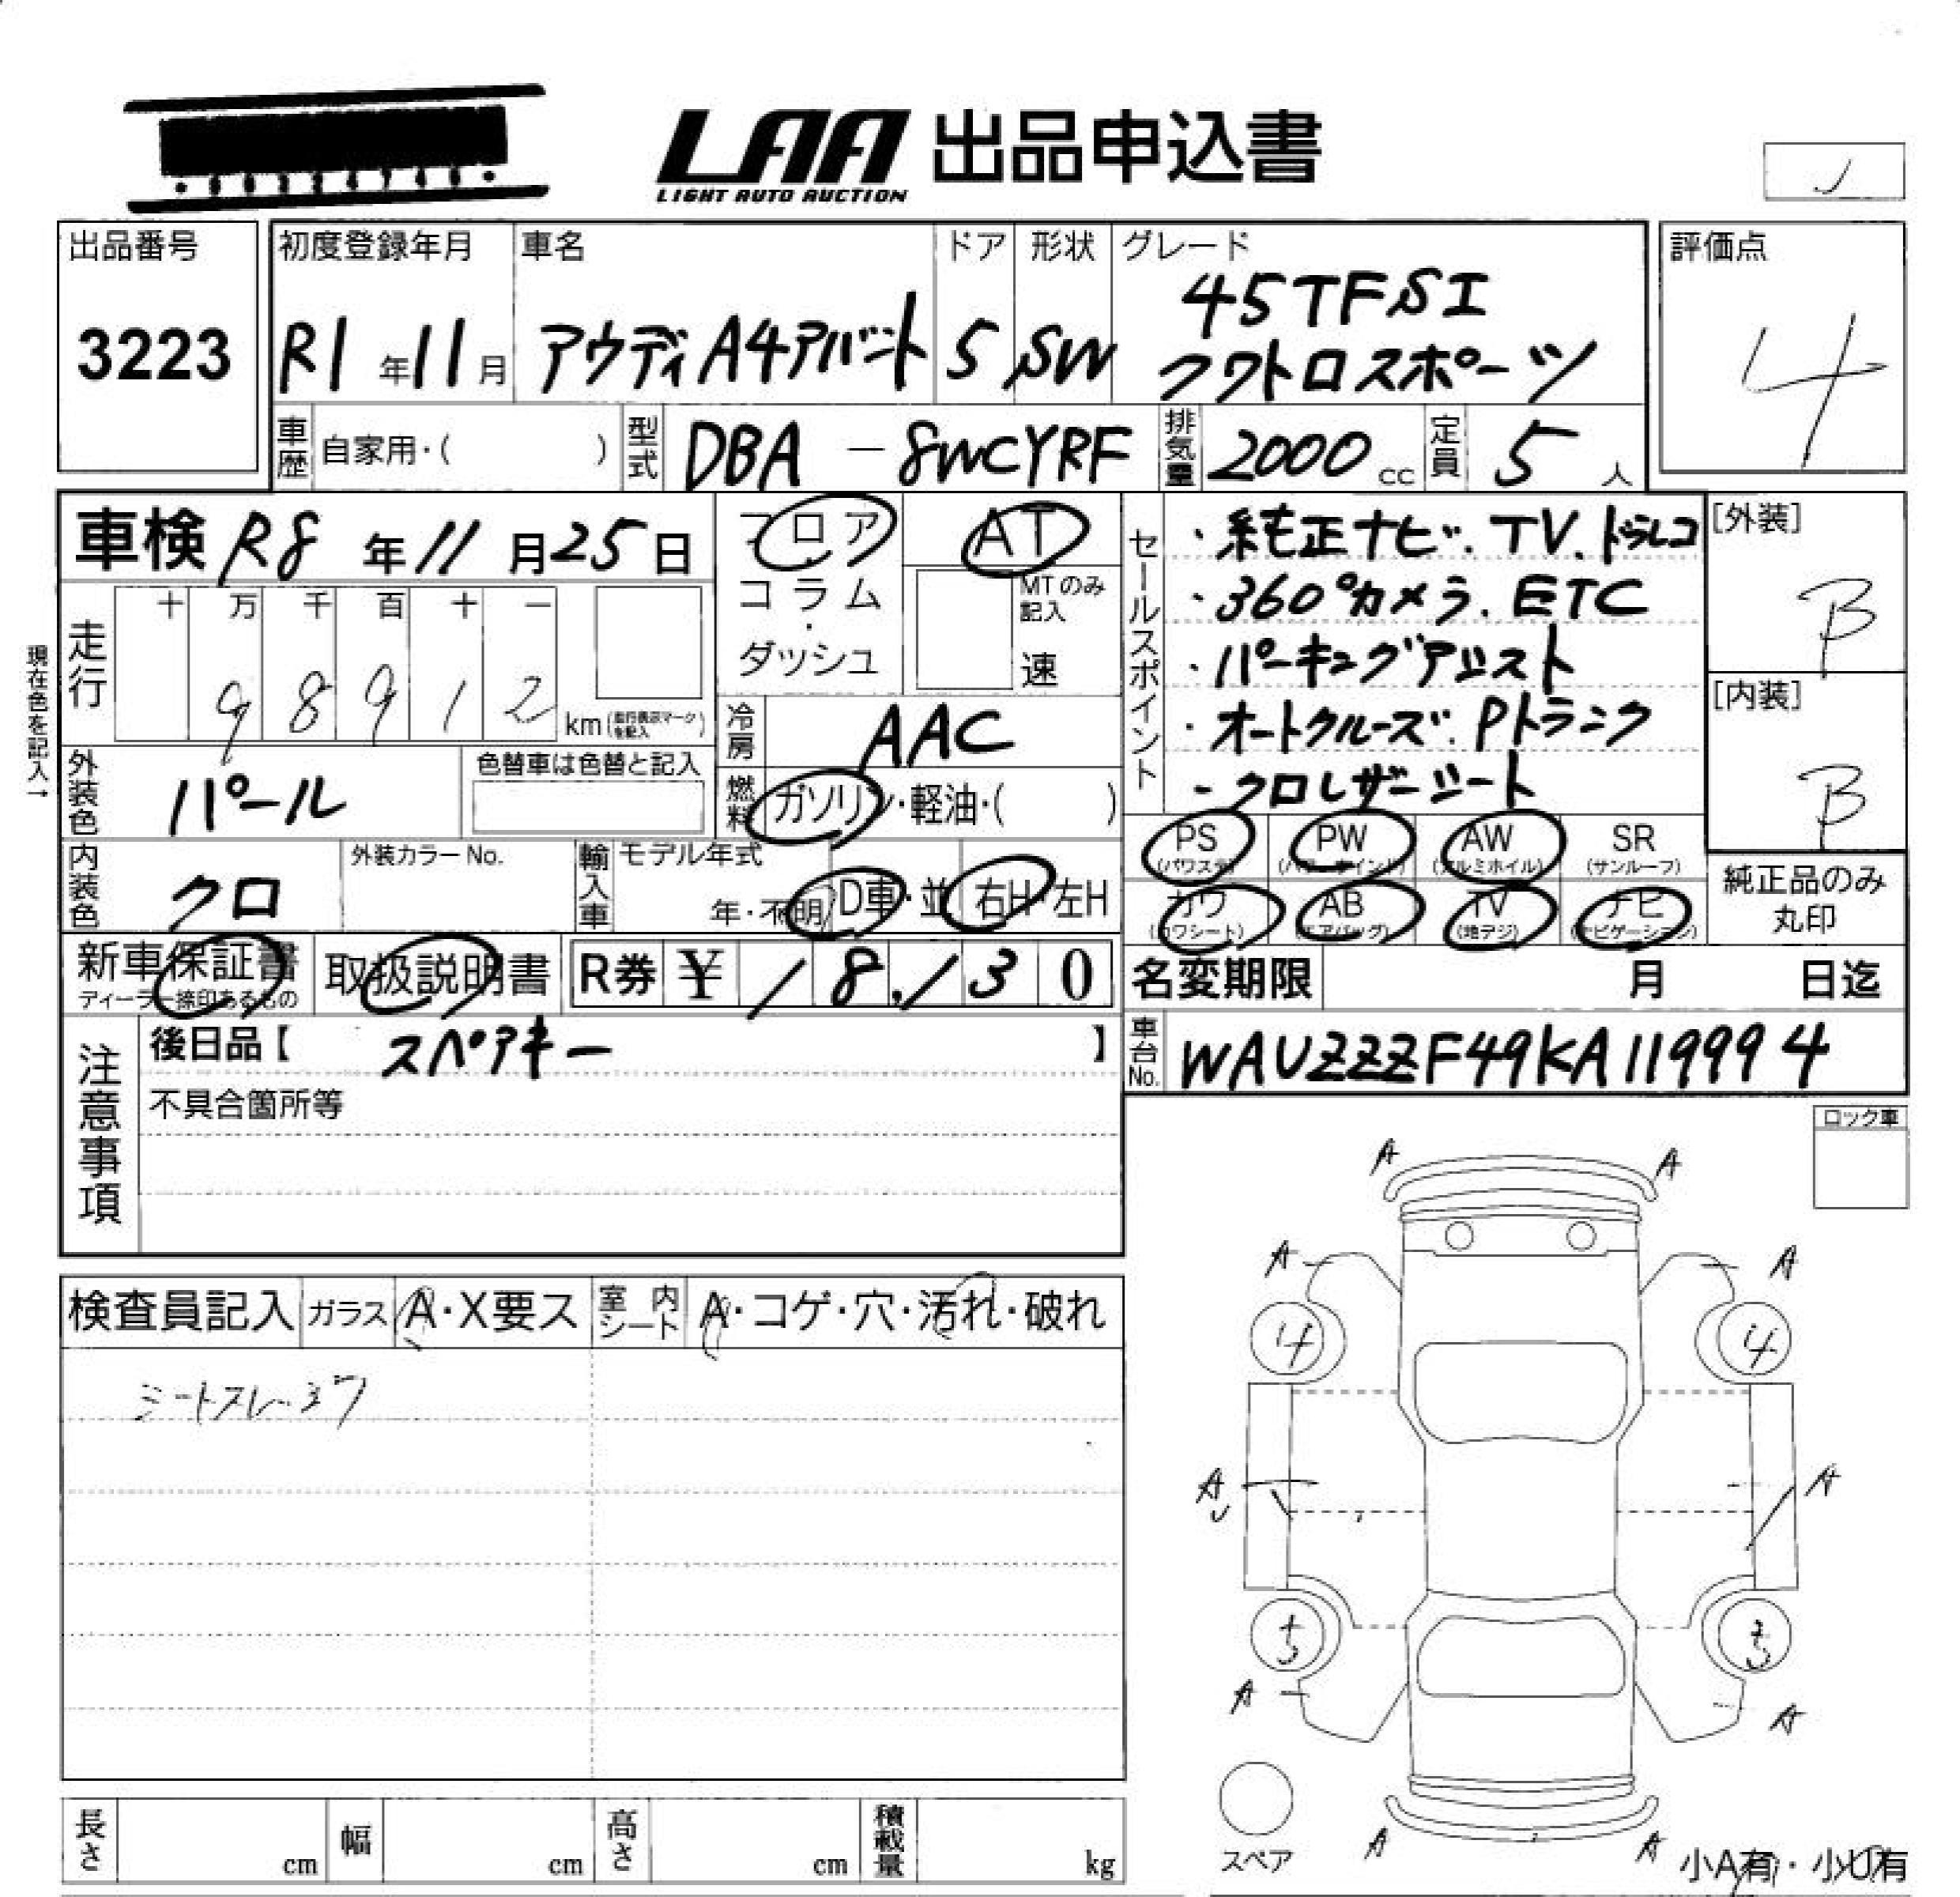 LAA 出品申込書
LIGHT AUTO AUCTION
出品番号
3223
初度登録年月
R1年11月
車名
アウディA4アバント
ドア
5
形状
SW
グレード
45TFSI
クワトロスポーツ
評価点
4
車歴 自家用・( )
型式 DBA-8WCYRF
排気量 2000cc
定員 5人
車検 R8年11月25日
フロア
コラム
・
ダッシュ
AT
MTのみ記入
速
セールスポイント
・純正ナビ.TV.ドラレコ
・360°カメラ.ETC
・パーキングアシスト
・オートクルーズ.Pトランク
・クロレザーシート
[外装]
B
[内装]
B
現在色を記入→
走行
十 万 千 百 十 一
9 8 9 1 2 km
冷房 AAC
外装色 パール
色替車は色替と記入
燃料 ガソリン・軽油・( )
内装色 クロ
外装カラーNo.
輸入車 モデル年式
年・不明 D車・並 右H・左H
PS (パワステ) PW (パワーウインド) AW (アルミホイル) SR (サンルーフ)
カワ (カワシート) AB (エアバッグ) TV (地デジ) ナビ (ナビゲーション)
純正品のみ
丸印
新車保証書
ディーラー捺印あるもの
取扱説明書
R券 ¥ 18,130
名変期限 月 日迄
注意事項
後日品【 スペアキー 】
不具合箇所等
車台No. WAUZZZF49KA119994
ロック車
検査員記入 ガラス A・X要ス 室内シート A・コゲ・穴・汚れ・破れ
シートスレ・ヨゴレ
A A
A A
4 4
A A
5 5
A A
A A
スペア
小A有・小U有
長さ cm 幅 cm 高さ cm 積載量 kg